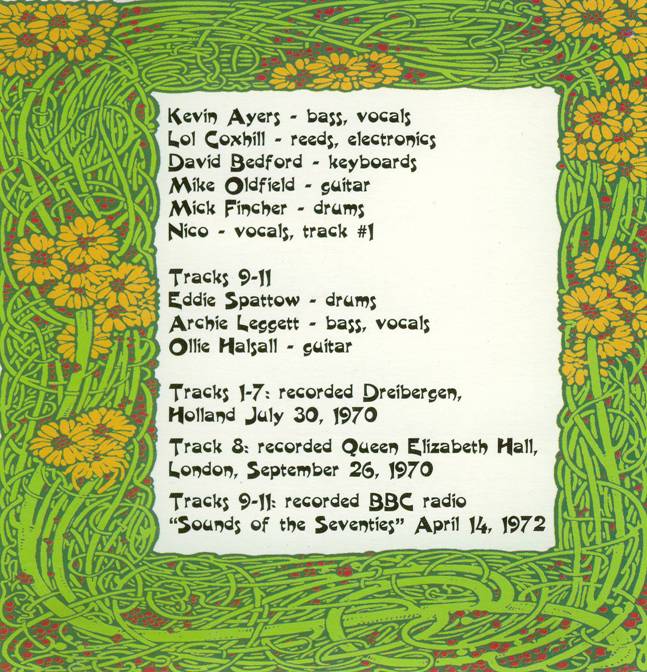 Kevin Ayers - bass, vocals
Lol Coxhill - reeds, electronics
David Bedford - keyboards
Mike Oldfield - guitar
Mick Fincher - drums
Nico - vocals, track #1
Tracks 9-11
Eddie Spattow - drums
Archie Leggett - bass, vocals
Ollie Halsall - guitar
Tracks 1-7: recorded Dreibergen,
Holland July 30, 1970
Track 8: recorded Queen Elizabeth Hall,
London, September 26, 1970
Tracks 9-11: recorded BBC radio
“Sounds of the Seventies” April 14, 1972